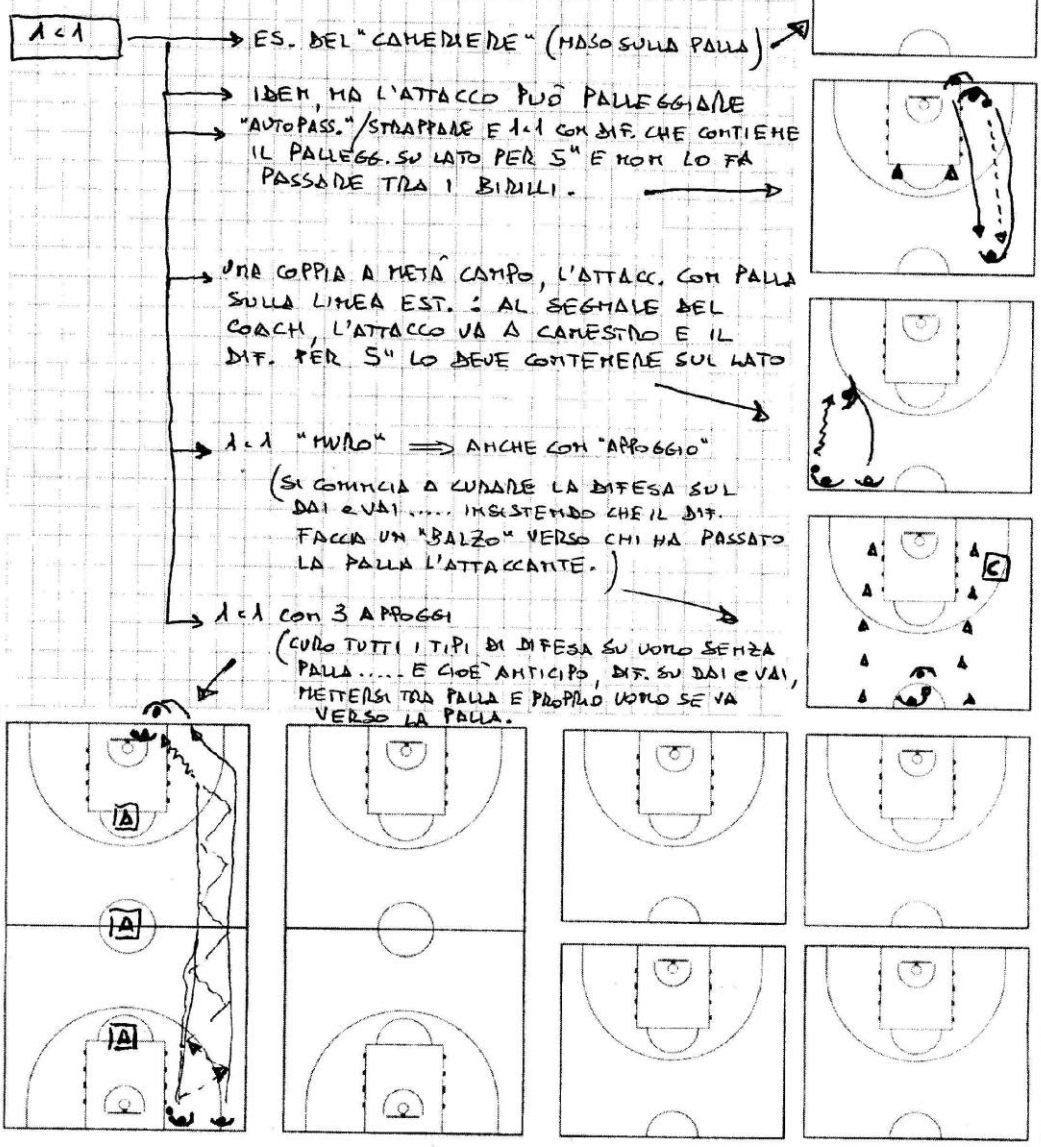 1c1
ES. DEL "CAMERIERE" (NASO SULLA PALLA)
IDEM, MA L'ATTACCO PUÒ PALLEGGIARE
"AUTOPASS."/STRAPPARE E 1c1 CON DIF. CHE CONTIENE
IL PALLEGG. SU LATO PER 5" E NON LO FA
PASSARE TRA I BIRILLI.
UNA COPPIA A METÀ CAMPO, L'ATTACC. CON PALLA
SULLA LINEA EST. : AL SEGNALE DEL
COACH, L'ATTACCO VA A CANESTRO E IL
DIF. PER 5" LO DEVE CONTENERE SUL LATO
1c1 "MURO" ⇒ ANCHE CON "APPOGGIO"
(SI COMINCIA A CURARE LA DIFESA SUL
DAI e VAI..... INSISTENDO CHE IL DIF.
FACCIA UN "BALZO" VERSO CHI HA PASSATO
LA PALLA L'ATTACCANTE.)
C
1c1 CON 3 APPOGGI
(CURO TUTTI I TIPI DI DIFESA SU UOMO SENZA
PALLA..... E CIOÈ ANTICIPO, DIF. SU DAI e VAI,
METTERSI TRA PALLA E PROPRIO UOMO SE VA
VERSO LA PALLA.
A
A
A